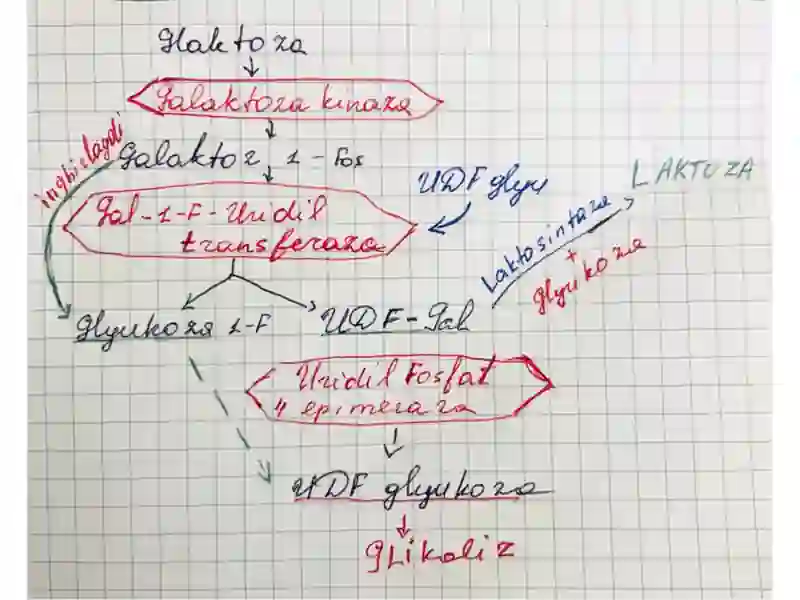 Galaktoza
Galaktoza kinaza
Galaktoz 1-Fos
inghizlagdi
UDF glyu
LAKTOZA
Gal-1-F-Uridil
transferaza
Laktosintaza
+
glyukoza
Glyukoza 1-F
UDF-Gal
Uridil Fosfat
4 epimeraza
UDF glyukoza
GLikoliz